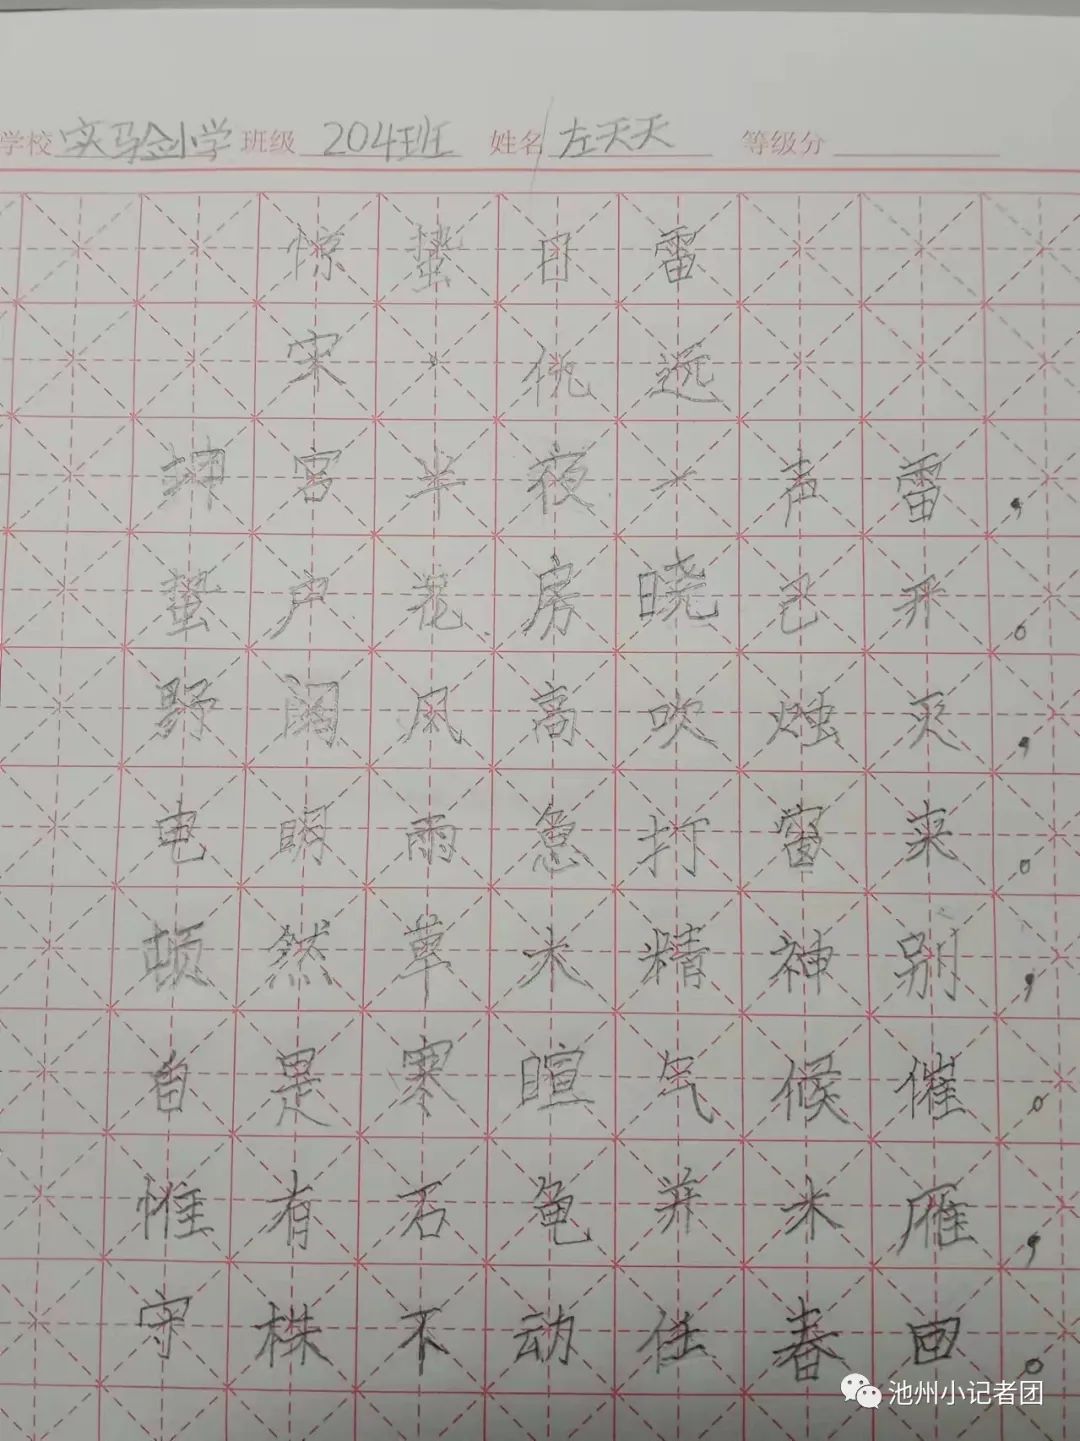 学校 实验小学 班级 204班 姓名 左天天 等级分
惊蛰日雷
宋·仇远
坤宫半夜一声雷，
蛰户花房晓已开。
野阔风高吹烛灭，
电明雨急打窗来。
顿然草木精神别，
自是寒暄气候催。
惟有石龟并木雁，
守株不动任春回。
池州小记者团